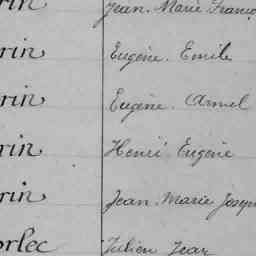 rin Jean. Marie Franço
rin Eugène. Emile
rin Eugène. Armel
rin Henri Eugène
rin Jean. Marie Joseph
orlec Julien Jean